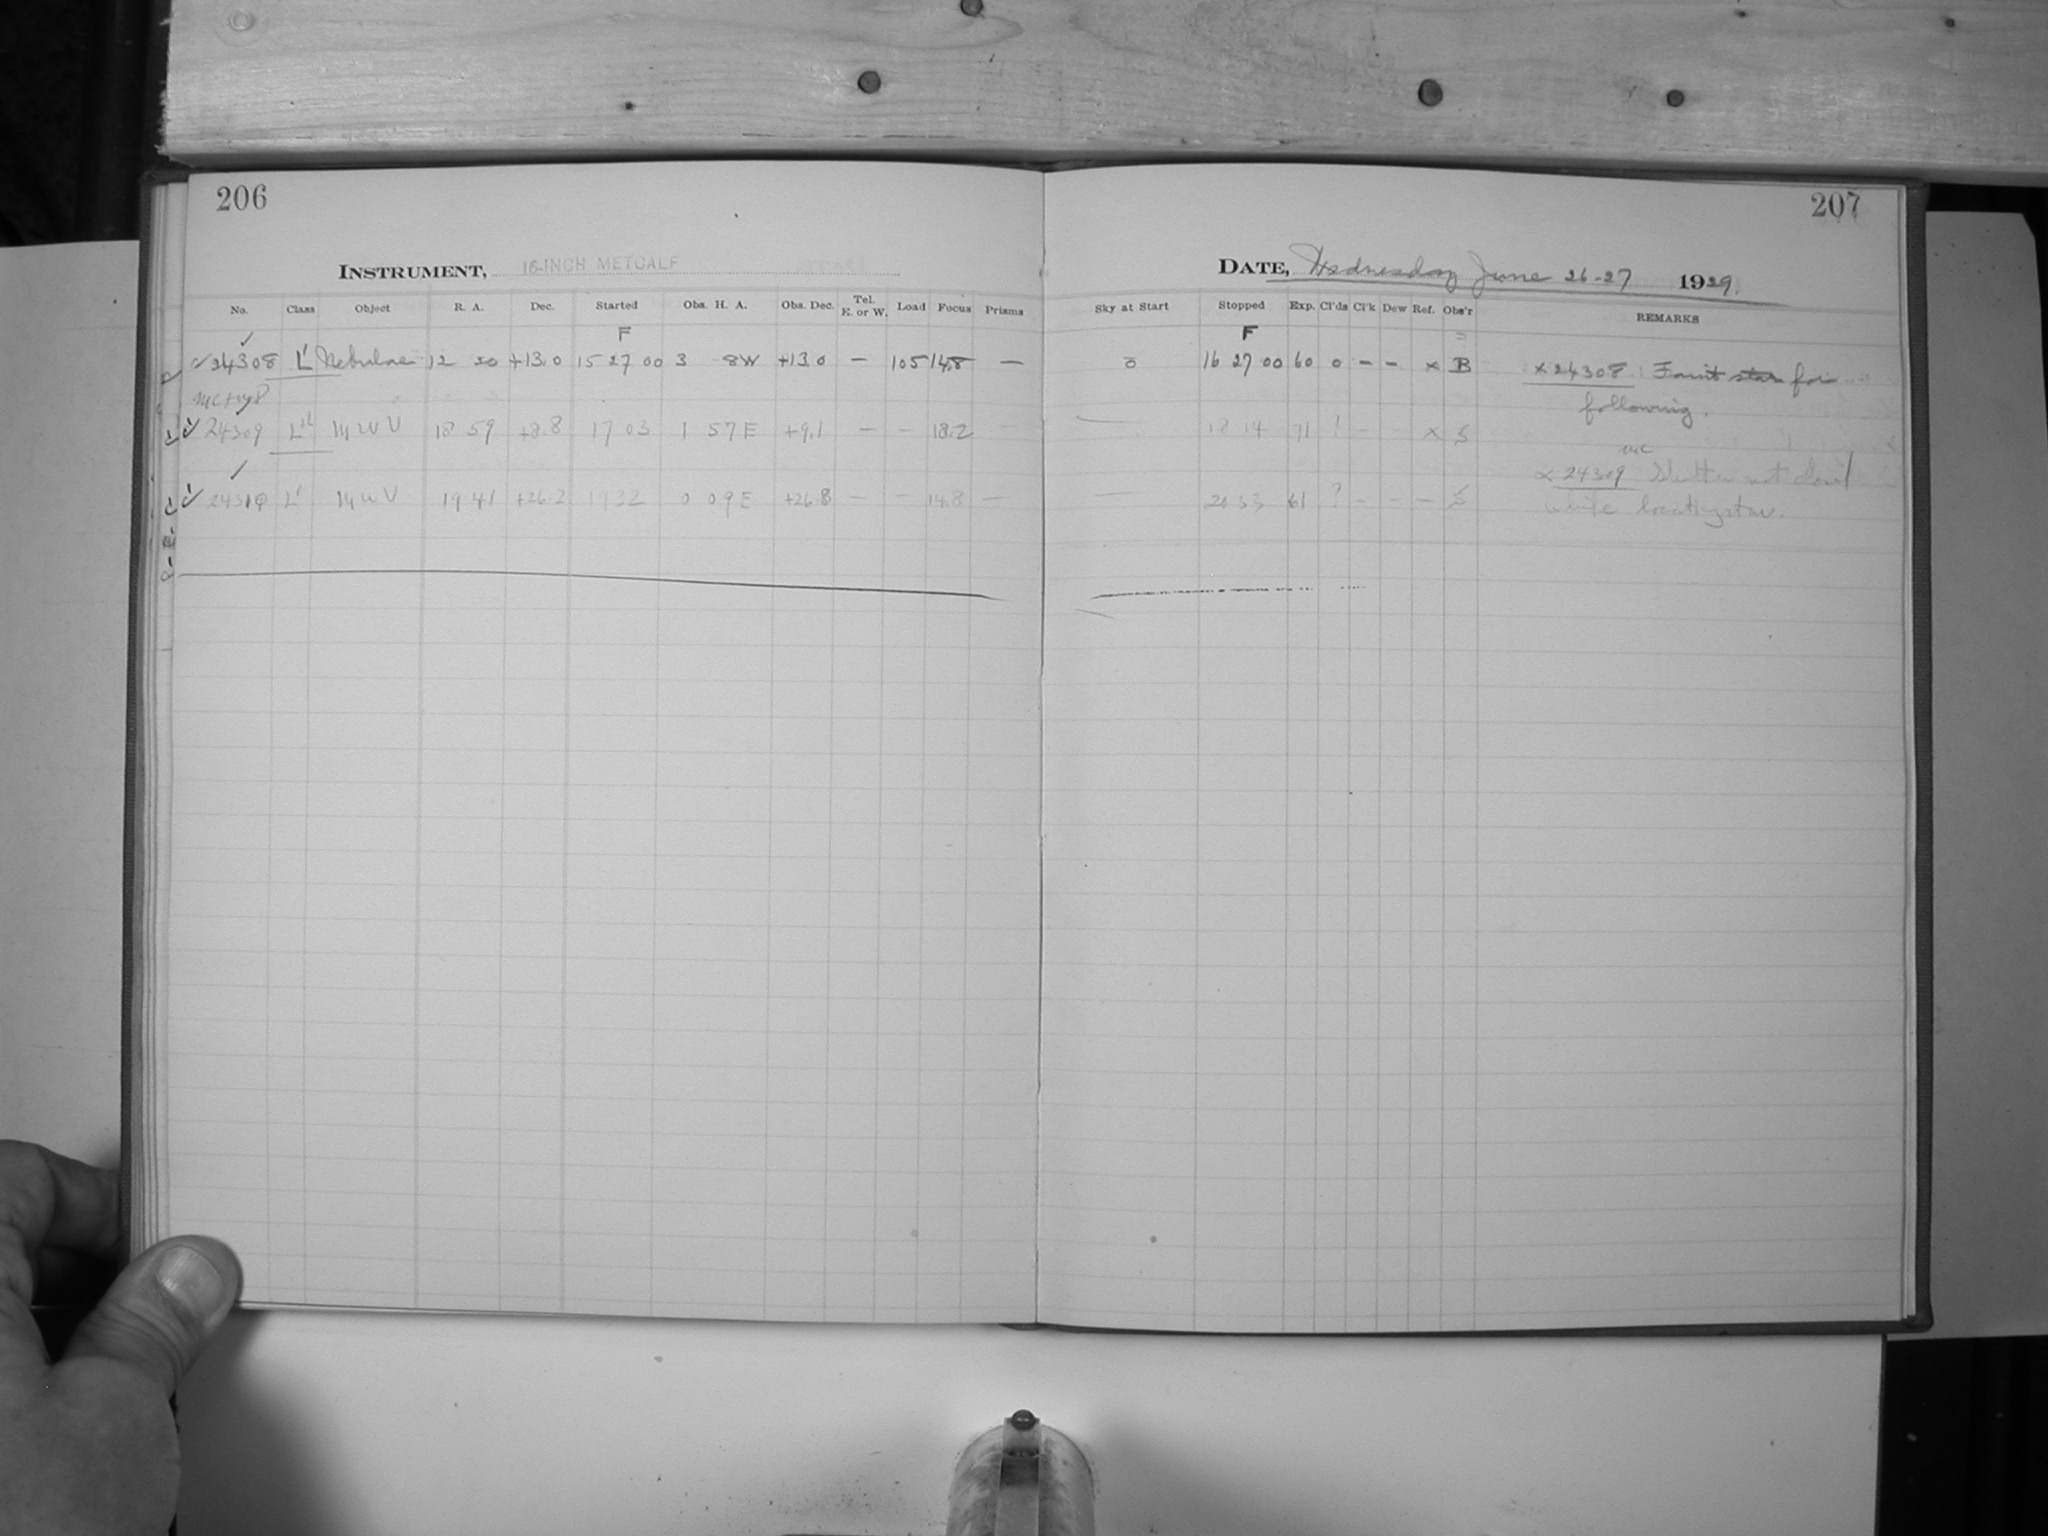 206
207
INSTRUMENT, 16-INCH METCALF
DATE, Wednesday June 26-27 1929.
No. Class Object R. A. Dec. Started Obs. H. A. Obs. Dec. Tel. E. or W. Load Focus Prisms
Sky at Start Stopped Exp. Cl'ds Cl'k Dew Ref. Obs'r REMARKS
F F
24308 L' Nebulae 12 20 +13.0 15 27 00 3 8W +13.0 — 105 14.8 — 0 16 27 00 60 0 - - x B x 24308 Faint star for
following.
24309 MWV 18 59 +8.8 17 03 1 57E +9.1 — — 18.2 — 18 14 71 ! - - x S
MC
x 24309 Shutter not closed
24310 L' MWV 19 41 +26.2 19 32 0 09E +26.8 — — 14.8 — — 20 33 61 ? - - — S
while locating star.